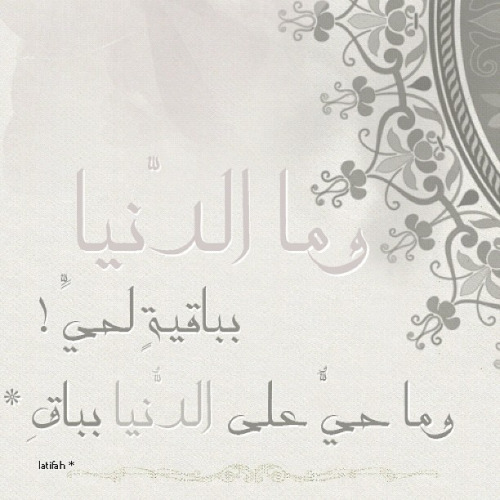 وما الدّنيا
بباقيةٍ لحيٍّ !
وما حيٌّ على الدُّنيا بباقِ *
latifah *